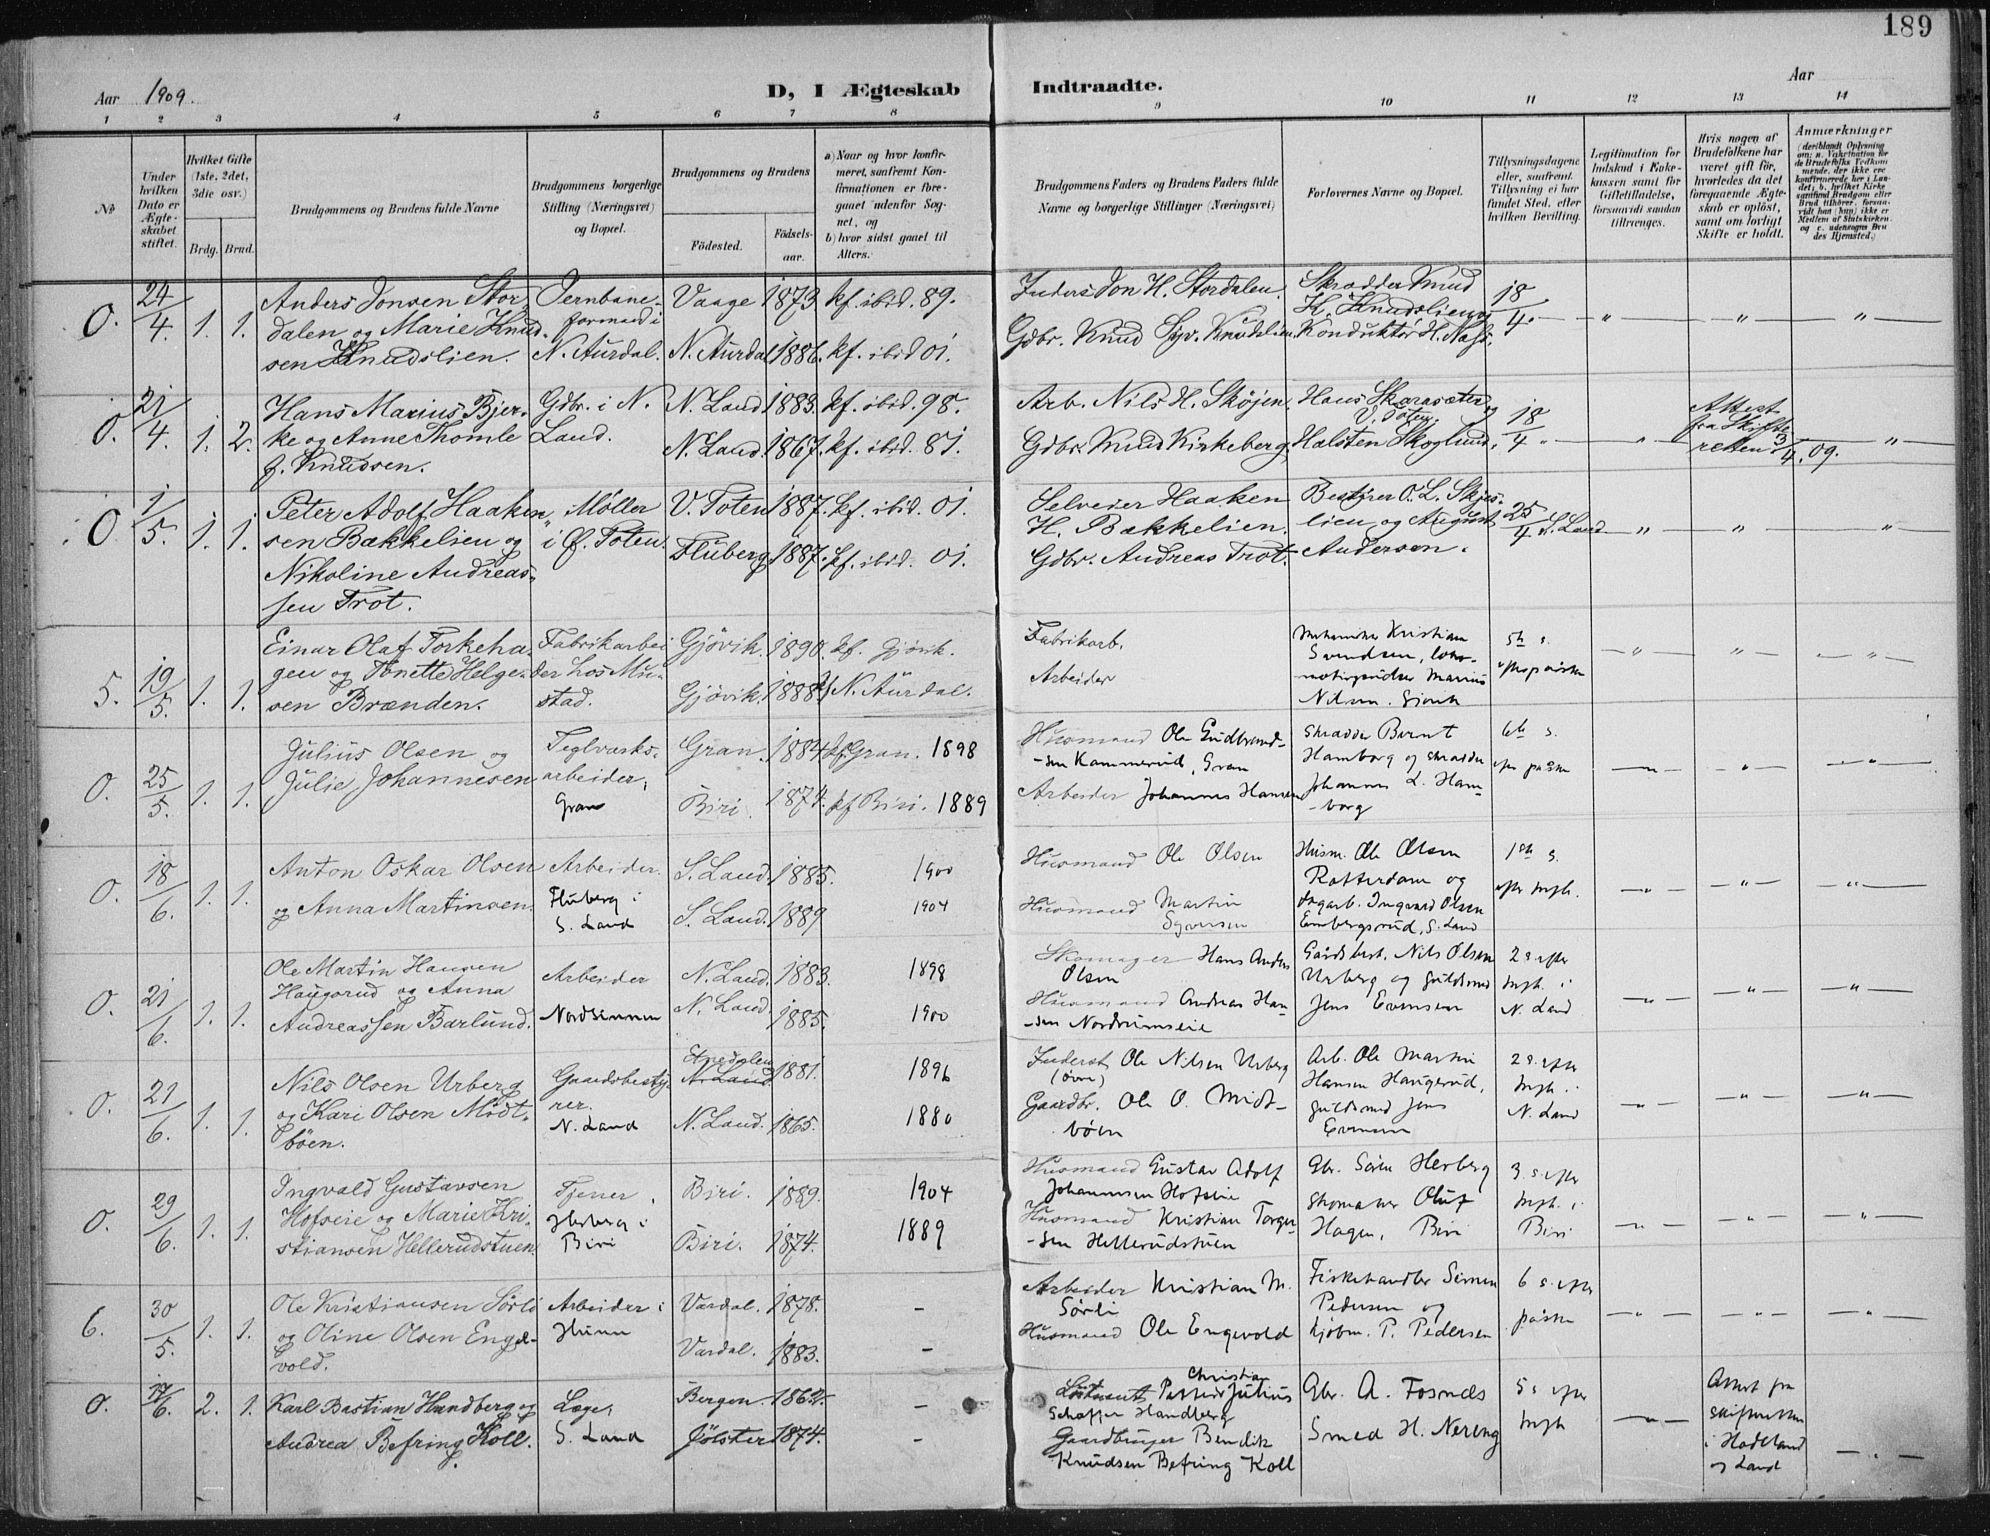 189
Aar 1909.
D, I Ægteskab
Indtraadte.
Aar
1 2 3 4 5 6 7 8 9 10 11 12 13 14
№
Under hvilken Dato er Ægteskabet stiftet.
Hvilket Gifte (1ste, 2det, 3die osv.)
Brdg. Brud.
Brudgommens og Brudens fulde Navne
Brudgommens borgerlige Stilling (Næringsvei) og Bopæl.
Brudgommens og Brudens
Födested.
Födselsaar.
a) Naar og hvor konfirmeret, saafremt Konfirmationen er foregaaet udenfor Sognet, og
b) hvor sidst gaaet til Alters.
Brudgommens Faders og Brudens Faders fulde Navne og borgerlige Stillinger (Næringsvei)
Forlovernes Navne og Bopæl.
Tillysningsdagene eller, saafremt Tillysning ei har fundet Sted, efter hvilken Bevilling.
Legitimation for Indskud i Enkekassen samt for Giftetilladelse, forsaavidt saadan tiltrænges.
Hvis nogen af Brudefolkene har været gift för, hvorledes da det foregaaende Ægteskab er oplöst, samt om lovligt Skifte er holdt.
Anmærkninger
O. 24/4 1. 1.
Anders Jonsen Stor-
dalen og Marie Knud-
sen Knudslien.
Jernbane-
formand i
N. Aurdal.
Vaage 1873 kf. ibid. 89.
N. Aurdal 1886. kf. ibid 01.
Inders. Jon H. Stordalen.
Gdbr. Knud Syv. Knudslien
Skrædder Knud
H. Knudslien og
Konduktör H. Næss.
18/4. " " "
O. 21/4 1. 2.
Hans Marius Bjer-
ke og Anne Thomle
f. Knudsen.
Gdbr. i N.
Land.
N. Land 1883. kf. ibid. 98.
N. Land 1867. kf. ibid. 81.
Arb. Nils H. Skøjen.
Gdbr. Knud Kirkeberg.
Hans Skarasæter
V. Toten og
Halsten Skoglund.
18/4. "
Attest
fra Skifte-
retten 3/4. 09. "
O. 1/5. 1. 1.
Peter Adolf Haaken-
sen Bakkelien og
Nikoline Andreas-
sen Trot.
Møller
i Ø. Toten.
V. Toten 1887. kf. ibid. 01.
Fluberg 1887. kf. ibid. 01.
Selveier Haaken
H. Bakkelien.
Gdbr. Andreas Trot.
Bestyrer O. L. Skjes-
lien og August
Andersen.
25/4 S. Land " " "
5. 19/5. 1. 1.
Einar Olaf Torkeha-
gen og Tonette Helge-
sen Brænden.
Fabrikarbei
der hos Mu-
stad.
Gjøvik. 1890. kf. Gjøvik.
Gjøvik. 1888. kf N. Aurdal.
Fabrikarb.
Arbeider
Mekaniker Kristian
Svendsen, loko-
motivpudser Marius
Nilsen. Gjøvik
5te s.
efter påske
" " "
O. 25/5. 1. 1.
Julius Olsen og
Julie Johannesen
Teglværks-
arbeider,
Gran
Gran. 1884. kf Gran. 1898
Biri. 1874. kf Biri. 1889
Husmand Ole Gudbrand-
-sen Kammerud, Gran
Arbeider Johannes Hansen
Skrædder Bernt
Hamborg og skrædder
Johannes L. Ham-
borg
6te s.
efter påske
" " "
O. 18/6. 1. 1.
Anton Oskar Olsen
og Anna Martinsen.
Arbeider.
Fluberg i
S. Land
S. Land. 1885. 1900
S. Land. 1889 1904
Husmand Ole Olsen
Husmand Martin
Syversen
Husm. Ole Olsen
Rotterdam og
Ingvard Olsen
Embergsrud, S. Land
1ste s.
efter trefh.
" " "
O. 21/6. 1. 1.
Ole Martin Hansen
Haugerud og Anna
Andreassen Barlund.
Arbeider
Nordsinnen
N. Land. 1883. 1898
N. Land. 1885. 1900
Skomager Hans Anders
Olsen
Husmand Andreas Han-
-sen Nordrumseie
Gårdsbest. Nils Olsen
Urberg og guldsmed
Jens Evensen
2 s. efter
trefh. i
N. Land
" " "
O. 21/6. 1. 1.
Nils Olsen Urberg
og Kari Olsen Midt-
bøen.
Gaardsbesty-
rer.
N. Land
Etnedalen
N. Land 1881. 1896
N. Land. 1865. 1880
Inderst Ole Nilsen Urberg
(øvre)
Gaardbr. Ole O. Midt-
bøen
Arb. Ole Martin
Hansen Haugerud,
guldsmed Jens
Evensen
2 s. efter
trefh. i
N. Land
" " "
O. 29/6. 1. 1.
Ingvald Gustavsen
Hofseie og Marie Kri-
stiansen Hellerudstuen.
Tjener,
Herberg i
Biri
Biri. 1889. 1904
Biri. 1874. 1889
Husmand Gustav Adolf
Johannesen Hofseie
Husmand Kristian Torger-
-sen Hellerudstuen
Gbr. Søren Herberg
skomaker Oluf
Hagen, Biri
3 s. efter
trefh. i
Biri
" " "
6. 30/5. 1. 1.
Ole Kristiansen Sörli
og Oline Olsen Enge-
vold.
Arbeider i
Hunn
Vardal. 1878. -
Vardal. 1883. -
Arbeider Kristian M.
Sörli
Husmand Ole Engevold
Fiskehandler Simen
Pedersen og
kjøbm. P. Pedersen
6 s. efter
påske
" " "
O. 17/6. 2. 1.
Karl Bastian Handberg og
Andrea Befring Koll.
Læge,
S. Land
Bergen. 1862. -
Jölster 1874. -
Christian
Löitnant Petter Julius
Schaffer Handberg
Gaardbruger Bendik
Knudsen Befring Koll
Gbr. A. Fosnæs
Smed H. Nereng
5 s efter
trefh
"
Attest fra
skifteretten
i Hadeland
og Land
"